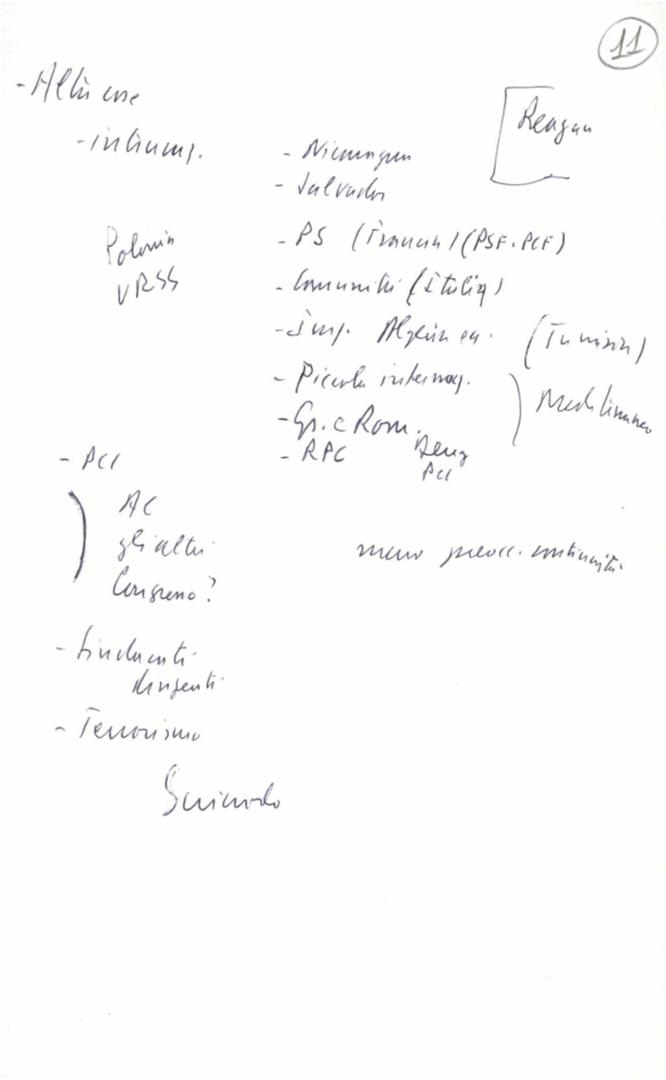 11
- Altre cose
- internaz.
Reagan
- Nicaragua
- Salvador
Polonia
URSS
- PS (Francia) (PSF-PCF)
- Comunità (Italia)
- Algeria (Tunisia)
- Piccola internaz.
Mediterraneo
- Gr. e Rom.
- RPC Deng
PCI
- PCI
AC
gli altri
Congresso?
meno preocc. continuità
- Sindacati
dirigenti
- Terrorismo